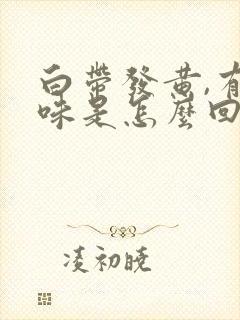 白帶發黄,有
味是怎麼回
凌初曉